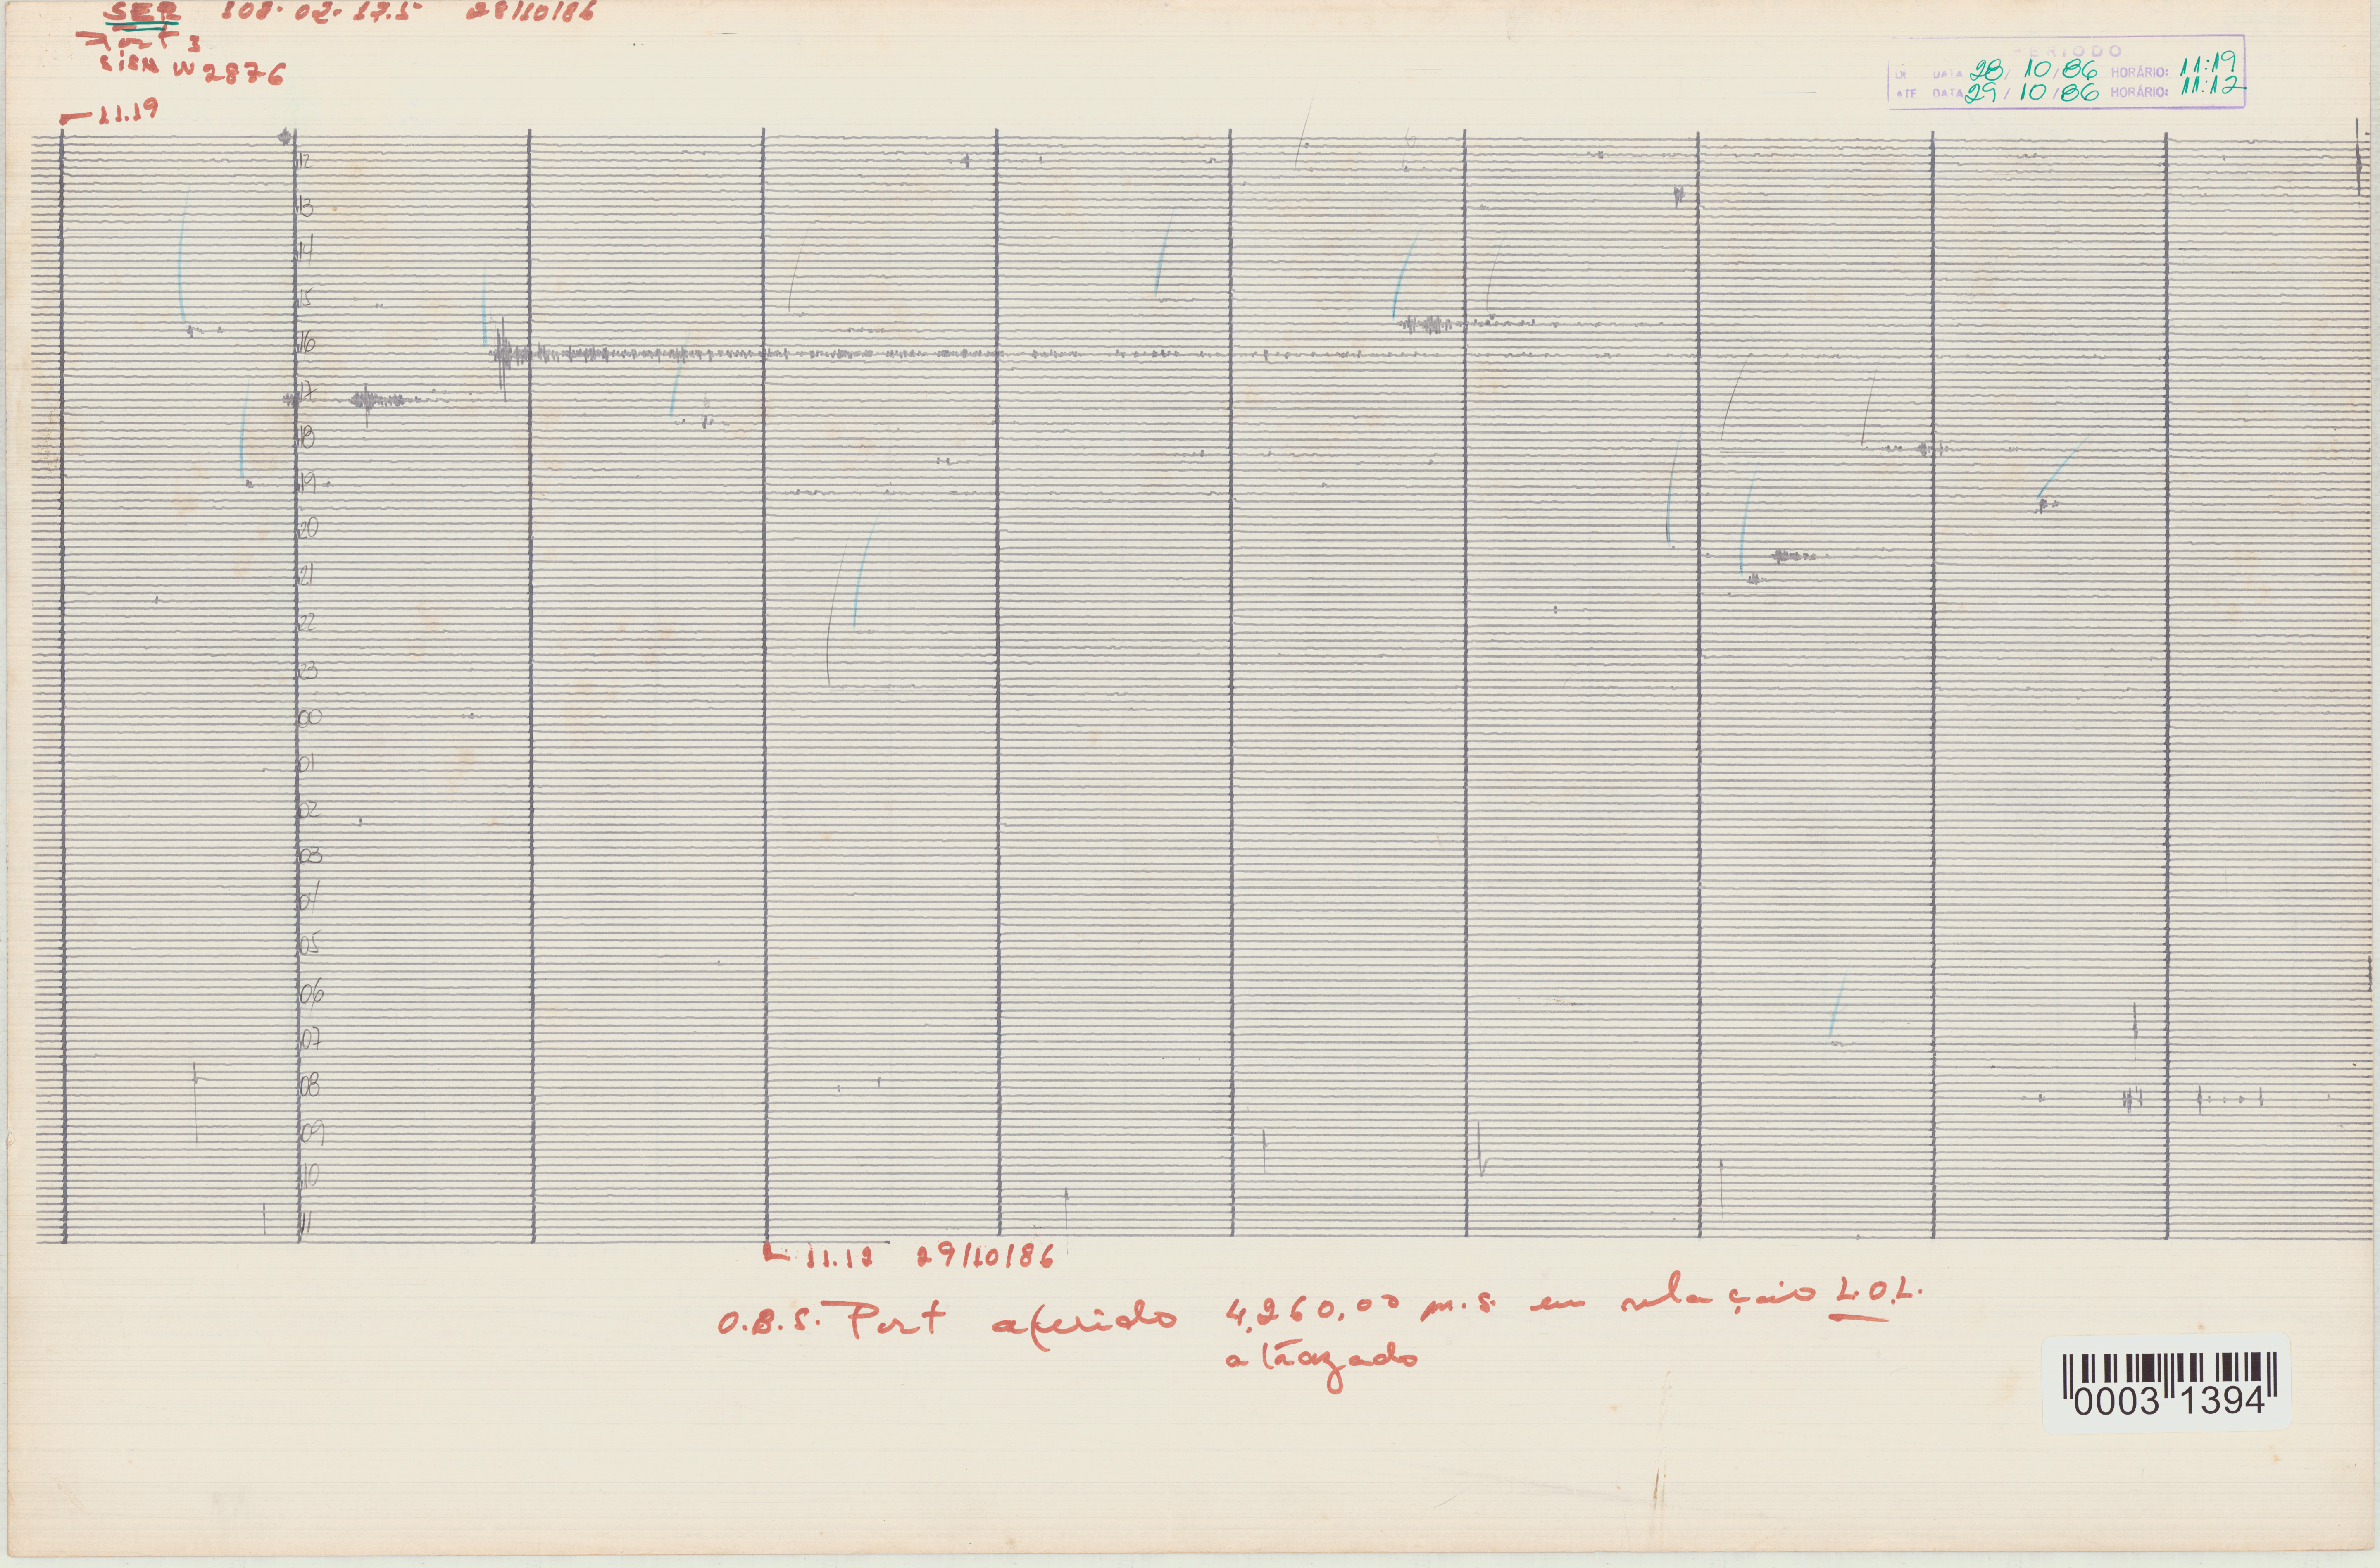 SER 108-02-17.5 28/10/86
Port 3
W 2876
11.19
PERIODO
DE DATA 28/10/86 HORÁRIO: 11:19
ATÉ DATA 29/10/86 HORÁRIO: 11:12
12
13
14
15
16
17
18
19
20
21
22
23
00
01
02
03
04
05
06
07
08
09
10
11
11.12 29/10/86
O.B.S. Port aferido 4,260,00 m.s. em relação L.O.L.
atrazado
0003 1394